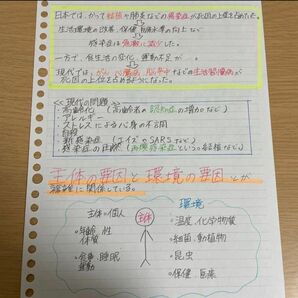 日本では、かつて結核や肺炎などの感染症が死因の上位を占めた。
生活環境の改善、保健・医療水準の向上など
感染症は急激に減少した。
一方で、食生活の変化、運動不足が
現代では、がん・心臓病・脳卒中などの生活習慣病が
死因の上位を占めるようになった。
<<現代の問題>>
・高齢化（高齢者の認知症の増加など）
・アレルギー
・ストレスによる心身の不調
・自殺
・新感染症（エイズやSARSなど）
・感染症の
主体の要因と環境の要因とが
複雑に関係している。
主体=個人
・年齢、性
体質
・食事、睡眠
運動
主体
環境
・温度、化学物質
・細菌、動植物
・昆虫
・保健、医薬